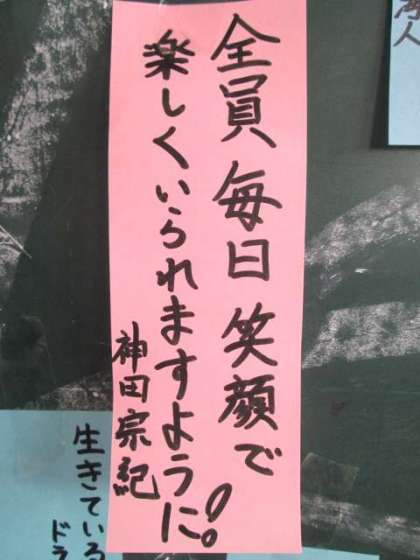 全員毎日笑顔で
楽しくいられますように!
神田宗紀
生きている
ドラ